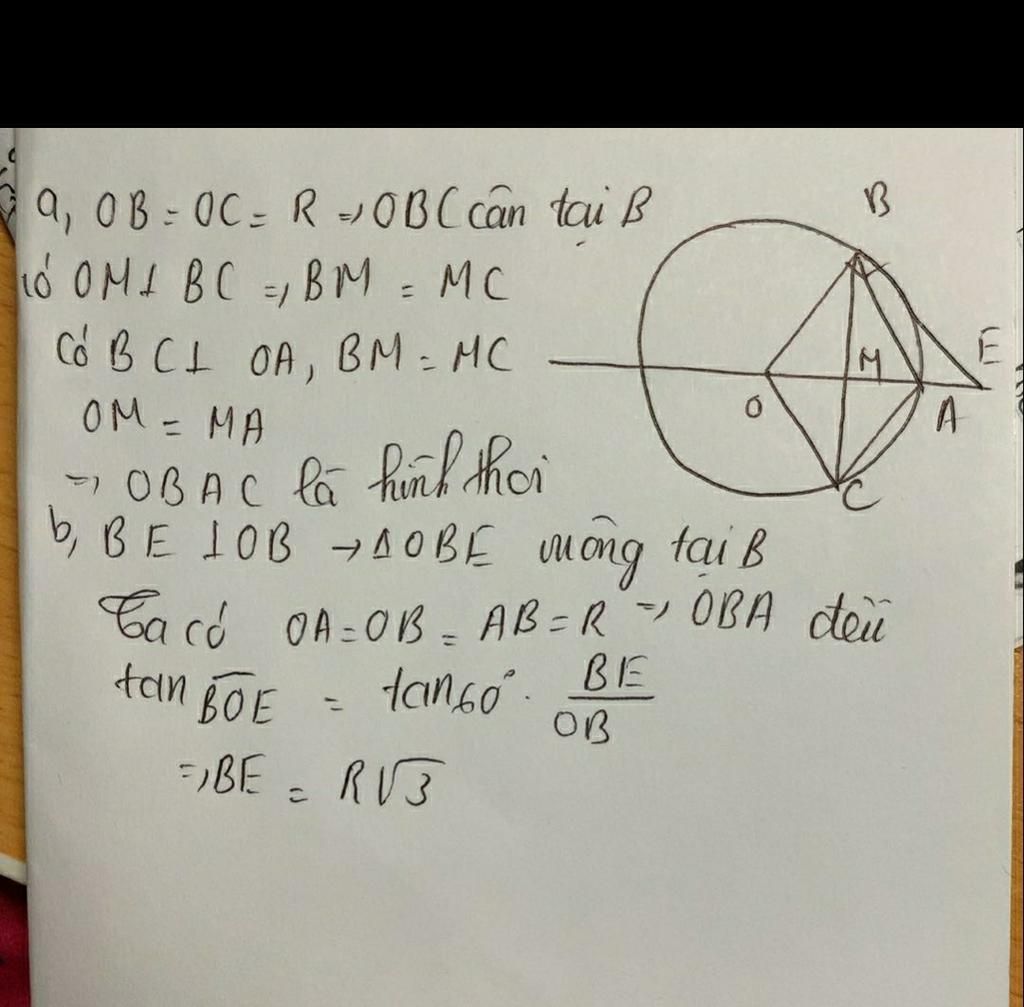 a, OB = OC = R => OBC cân tại B
có OM ⊥ BC => BM = MC
Có BC ⊥ OA, BM = MC
OM = MA
=> OBAC là hình thoi
b, BE ⊥ OB → ΔOBE vuông tại B
Ta có OA = OB = AB = R => OBA đều
tan BOE = tan 60° . BE / OB
=> BE = R√3
B
M
E
O
A
C